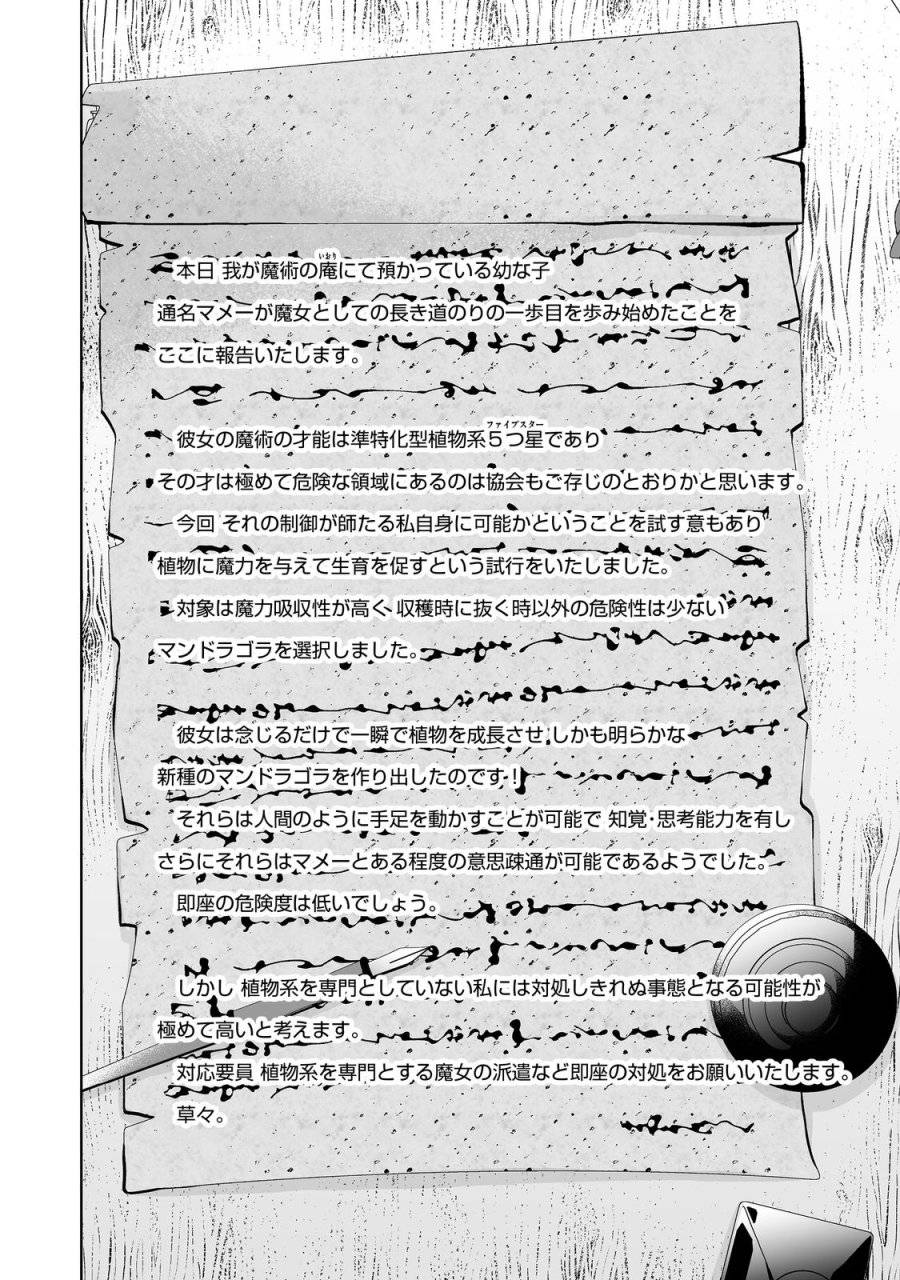 本日 我が魔術の庵にて預かっている幼な子
通名マメーが魔女としての長き道のりの一歩目を歩み始めたことを
ここに報告いたします。
彼女の魔術の才能は準特化型植物系５つ星であり
その才は極めて危険な領域にあるのは協会もご存じのとおりかと思います。
今回 それの制御が師たる私自身に可能かということを試す意もあり
植物に魔力を与えて生育を促すという試行をいたしました。
対象は魔力吸収性が高く 収穫時に抜く時以外の危険性は少ない
マンドラゴラを選択しました。
彼女は念じるだけで一瞬で植物を成長させ しかも明らかな
新種のマンドラゴラを作り出したのです！
それらは人間のように手足を動かすことが可能で 知覚・思考能力を有し
さらにそれらはマメーとある程度の意思疎通が可能であるようでした。
即座の危険度は低いでしょう。
しかし 植物系を専門としていない私には対処しきれぬ事態となる可能性が
極めて高いと考えます。
対応要員 植物系を専門とする魔女の派遣など即座の対処をお願いいたします。
草々。